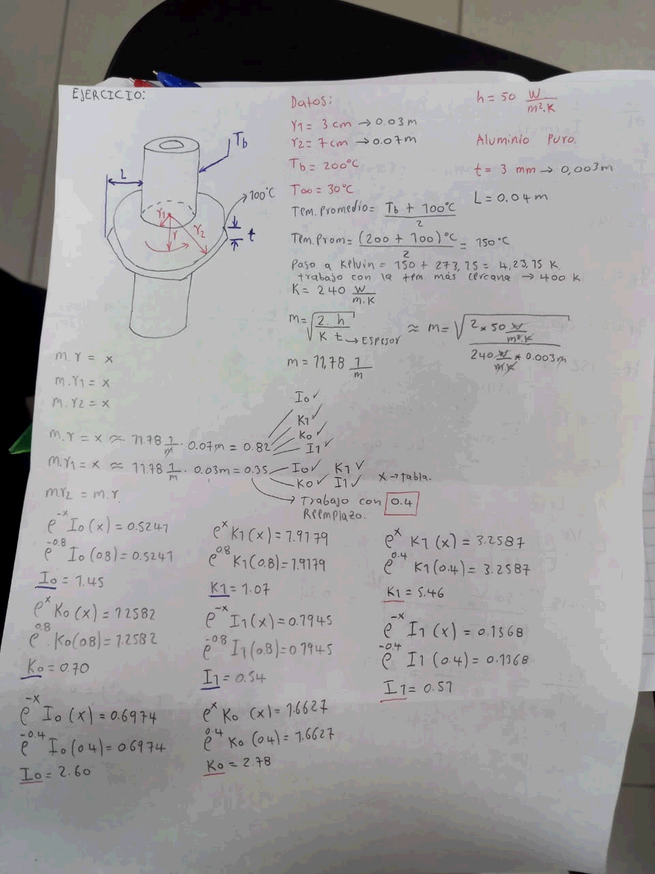 EJERCICIO:
L
Tb
100°C
r1
r
r2
t
Datos:
r1 = 3 cm → 0.03 m
r2 = 7 cm → 0.07 m
Tb = 200°C
T∞ = 30°C
h = 50 W/m².K
Aluminio Puro.
t = 3 mm → 0,003 m
L = 0.04 m
Tem. Promedio = (Tb + 100°C)/2
Tem. Prom = ((200 + 100)°C)/2 = 150°C
Paso a Kelvin = 150 + 273,15 = 4,23,15 K
trabajo con la tem más cercana → 400 K
K = 240 W/m.K
m = √(2.h/K t) → Espesor ≈ m = √(2 * 50 W/m².K / 240 W/m.K * 0.003m)
m = 11,78 1/m
m.r = x
m.r1 = x
m.r2 = x
m.r = x ≈ 11.78 1/m . 0.07m = 0.82
I0 ✓
K1 ✓
K0 ✓
I1 ✓
m.r1 = x ≈ 11.78 1/m . 0.03m = 0.35
I0 ✓ K1 ✓
K0 ✓ I1 ✓
x → tabla.
mr2 = m.r
Trabajo con 0.4
Reemplazo.
e^-x I0 (x) = 0.5241
e^-0.8 I0 (0.8) = 0.5241
I0 = 1.45
e^x K0 (x) = 1.2582
e^0.8 K0 (0.8) = 1.2582
K0 = 0.70
e^-x I0 (x) = 0.6974
e^-0.4 I0 (0.4) = 0.6974
I0 = 2.60
e^x K1 (x) = 1.9179
e^0.8 K1 (0.8) = 1.9179
K1 = 1.07
e^-x I1 (x) = 0.1945
e^-0.8 I1 (0.8) = 0.1945
I1 = 0.54
e^x K0 (x) = 1.6627
e^0.4 K0 (0.4) = 1.6627
K0 = 2.78
e^x K1 (x) = 3.2587
e^0.4 K1 (0.4) = 3.2587
K1 = 5.46
e^-x I1 (x) = 0.1368
e^-0.4 I1 (0.4) = 0.1368
I1 = 0.51